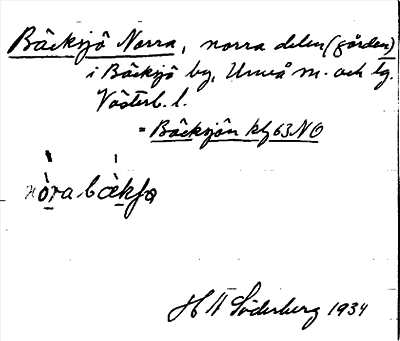 Bäcksjö Norra, norra delen (gården)
i Bäcksjö by, Umeå sn. och tg.
Västerb. l.
= Bäcksjön kbl 63 NO
nòra bàkʃø
H Söderberg 1934